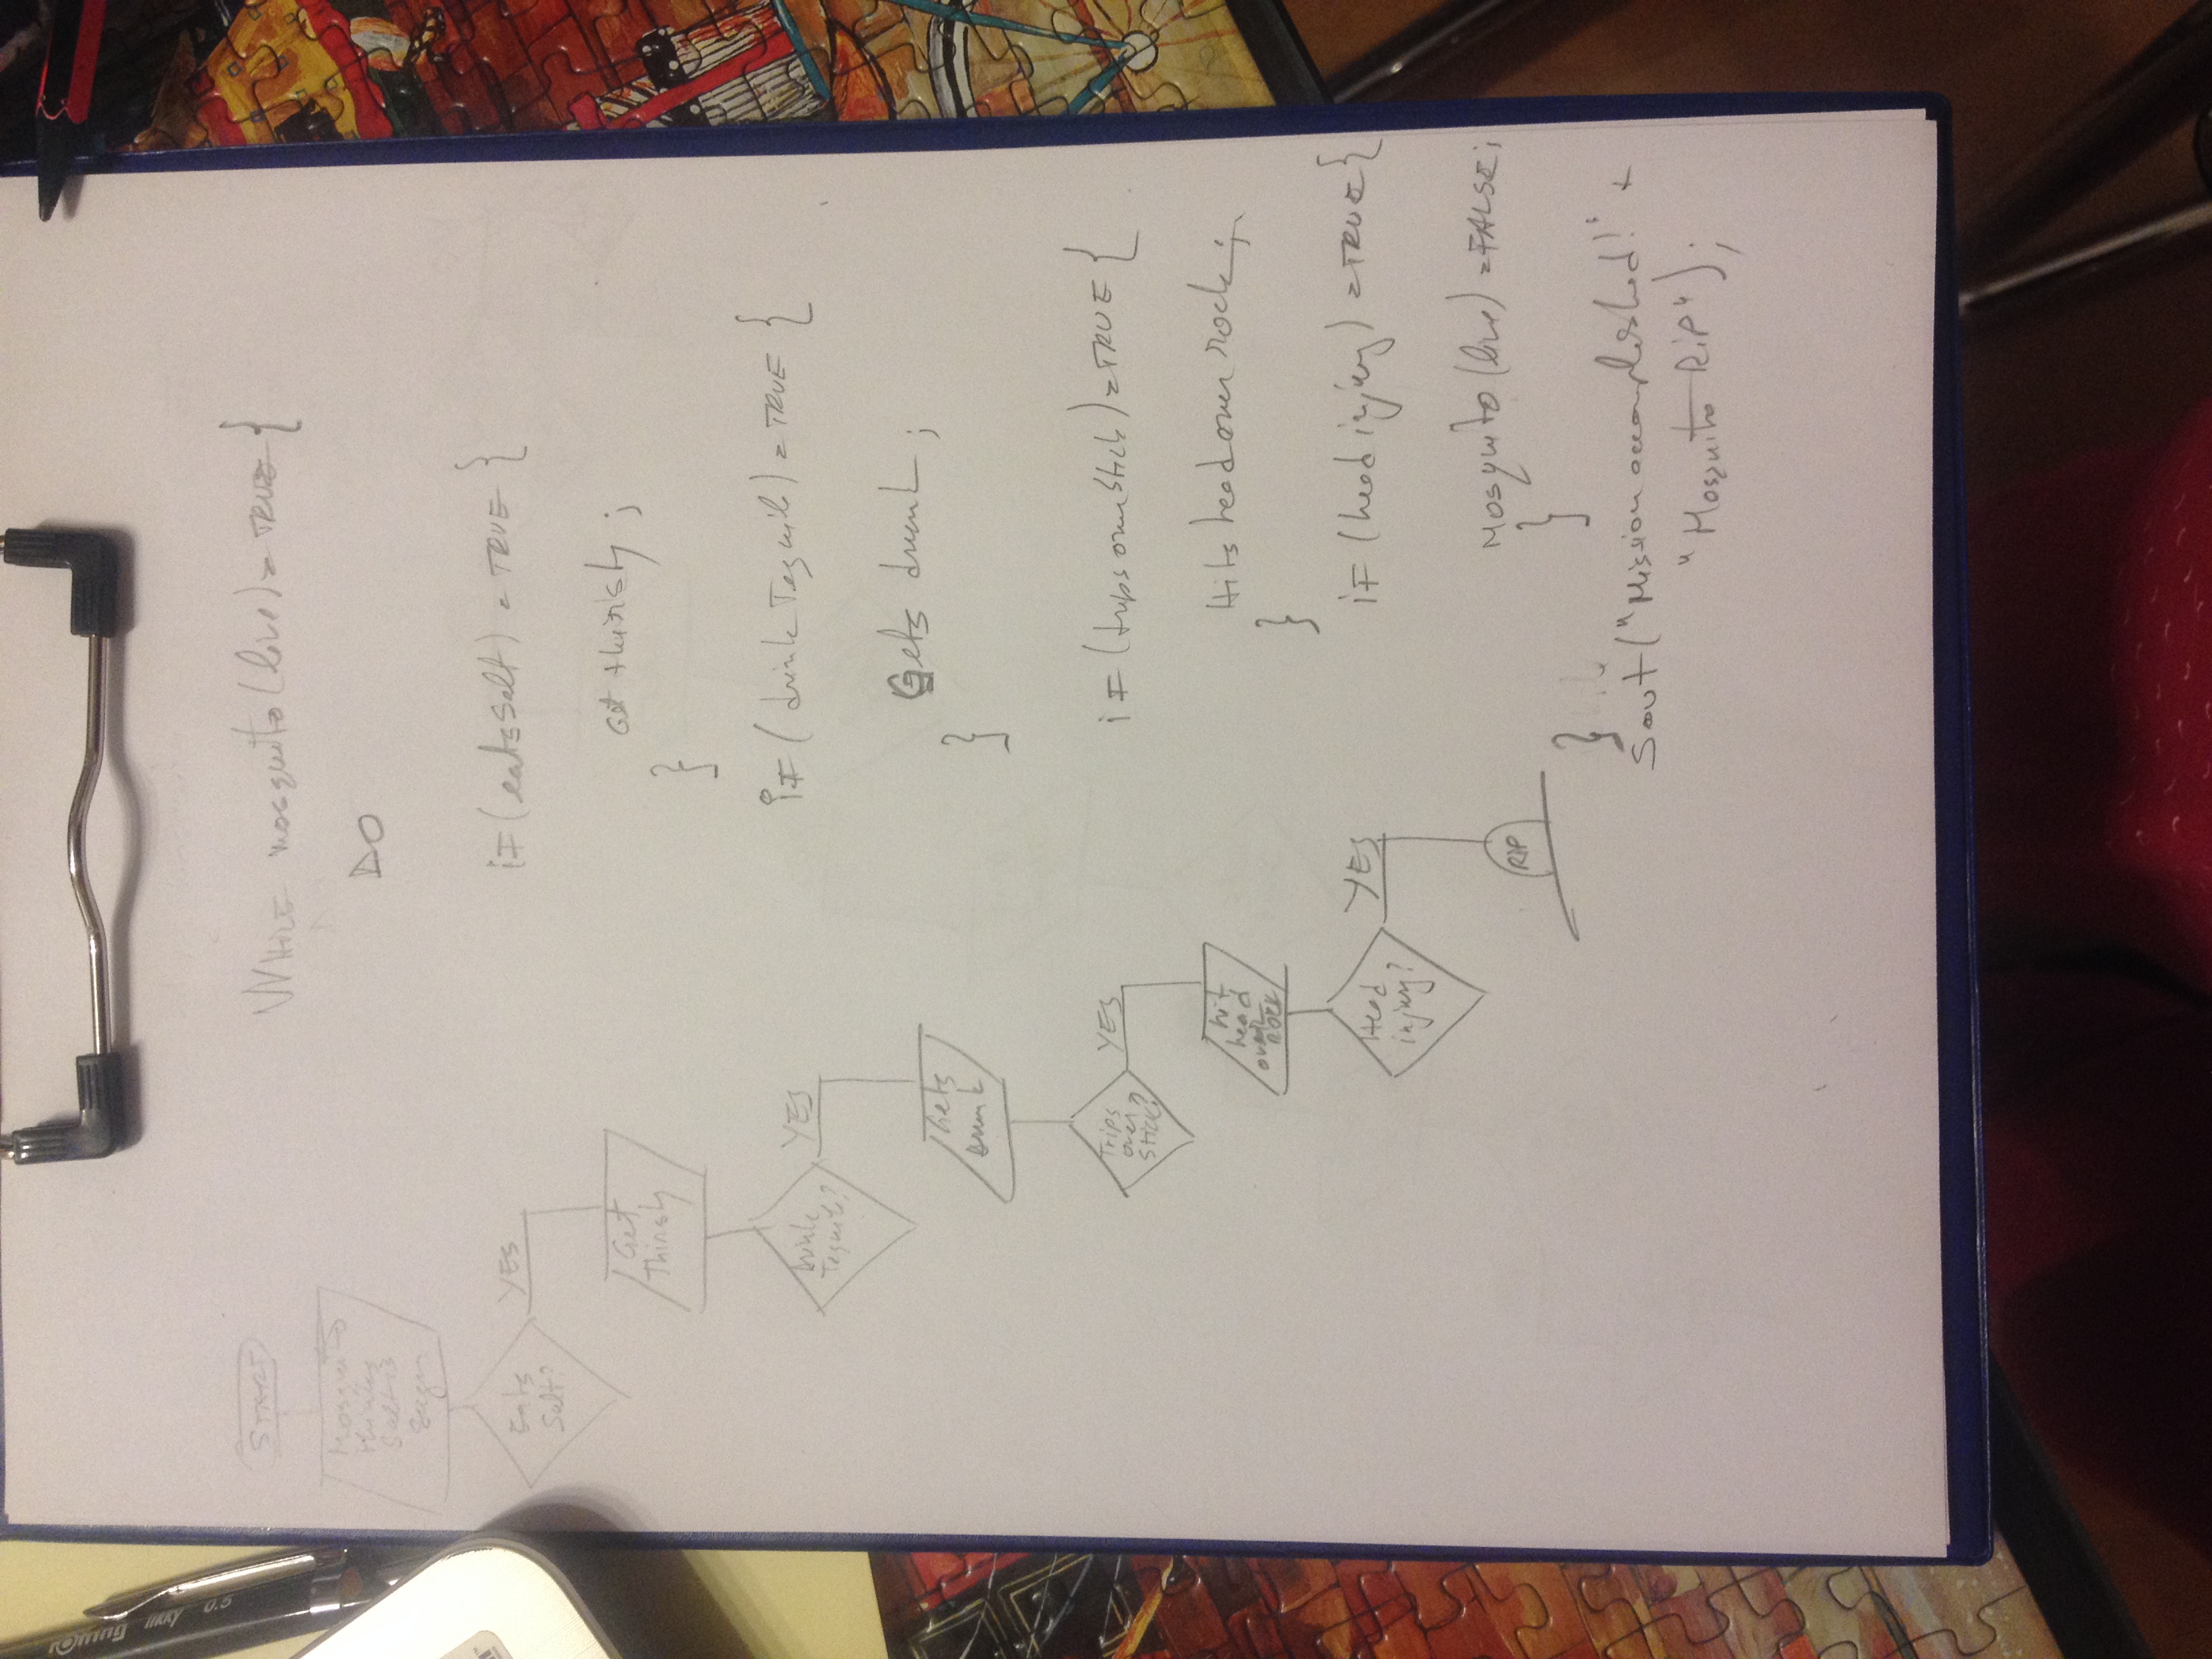 START
Mosquito
thinks
Salt is
Sugar
Eats
Salt?
YES
Get
Thirsty
Drink
Tequila?
YES
Gets
Drunk
Trips
over
Stick?
YES
hit
head
over
ROCK
Head
injury?
YES
RIP
WHILE mosquito (live) = TRUE {
DO
iF (eatsSalt) = TRUE {
Get thirsty ;
}
iF ( drink Tequila ) = TRUE {
Gets drunk ;
}
iF (trips over Stick ) = TRUE {
Hits head over rock ;
}
iF (head injury ) = TRUE {
Mosquito (live) = FALSE ;
}
}
Sout ("Mission accomplished!" +
"Mosquito RiP" ) ;
0.5